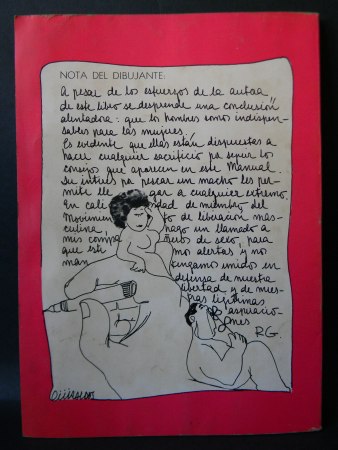 NOTA DEL DIBUJANTE:
A pesar de los esfuerzos de la autora
de este libro se desprende una conclusión
alentadora: que los hombres somos indispen-
sables para las mujeres.
Es evidente que ellas están dispuestas a
hacer cualquier sacrificio pa seguir los
consejos que aparecen en este Manual.
Su interés pa pescar un macho les per-
mite llegar a cualquier extremo.
En calidad de miembro del
Movimiento de liberación mas-
culina, hago un llamado a
mis compañeros de sexo, para
que este mos alertas y no
man tengamos unidos en
defensa de nuestra
libertad y de nues-
tras legítimas
aspiracio-
nes
RG.